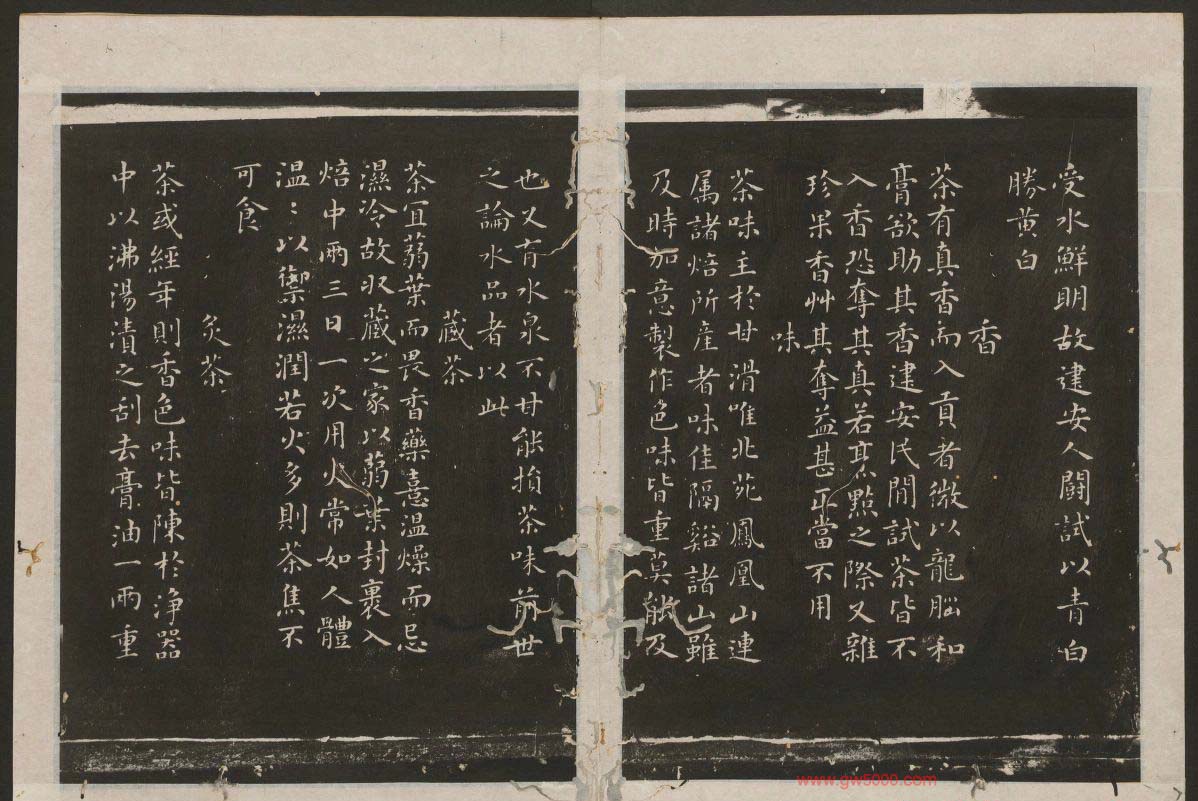 受水鮮明故建安人闘試以青白
勝黄白
香
茶有真香而入貢者微以龍腦和
膏欲助其香建安民間試茶皆不
入香恐奪其真若烹點之際又雜
珍果香艸其奪益甚正當不用
味
茶味主於甘滑唯北苑鳳凰山連
属諸焙所産者味佳隔谿諸山雖
及時加意製作色味皆重莫能及
也又有水泉不甘能損茶味前世
之論水品者以此
藏茶
茶宜蒻葉而畏香藥憙温燥而忌
濕冷故収藏之家以蒻葉封裹入
焙中兩三日一次用火常如人體
温〻以禦濕潤若火多則茶焦不
可食
炙茶
茶或經年則香色味皆陳於浄器
中以沸湯漬之刮去膏油一兩重
www.gw5000.com